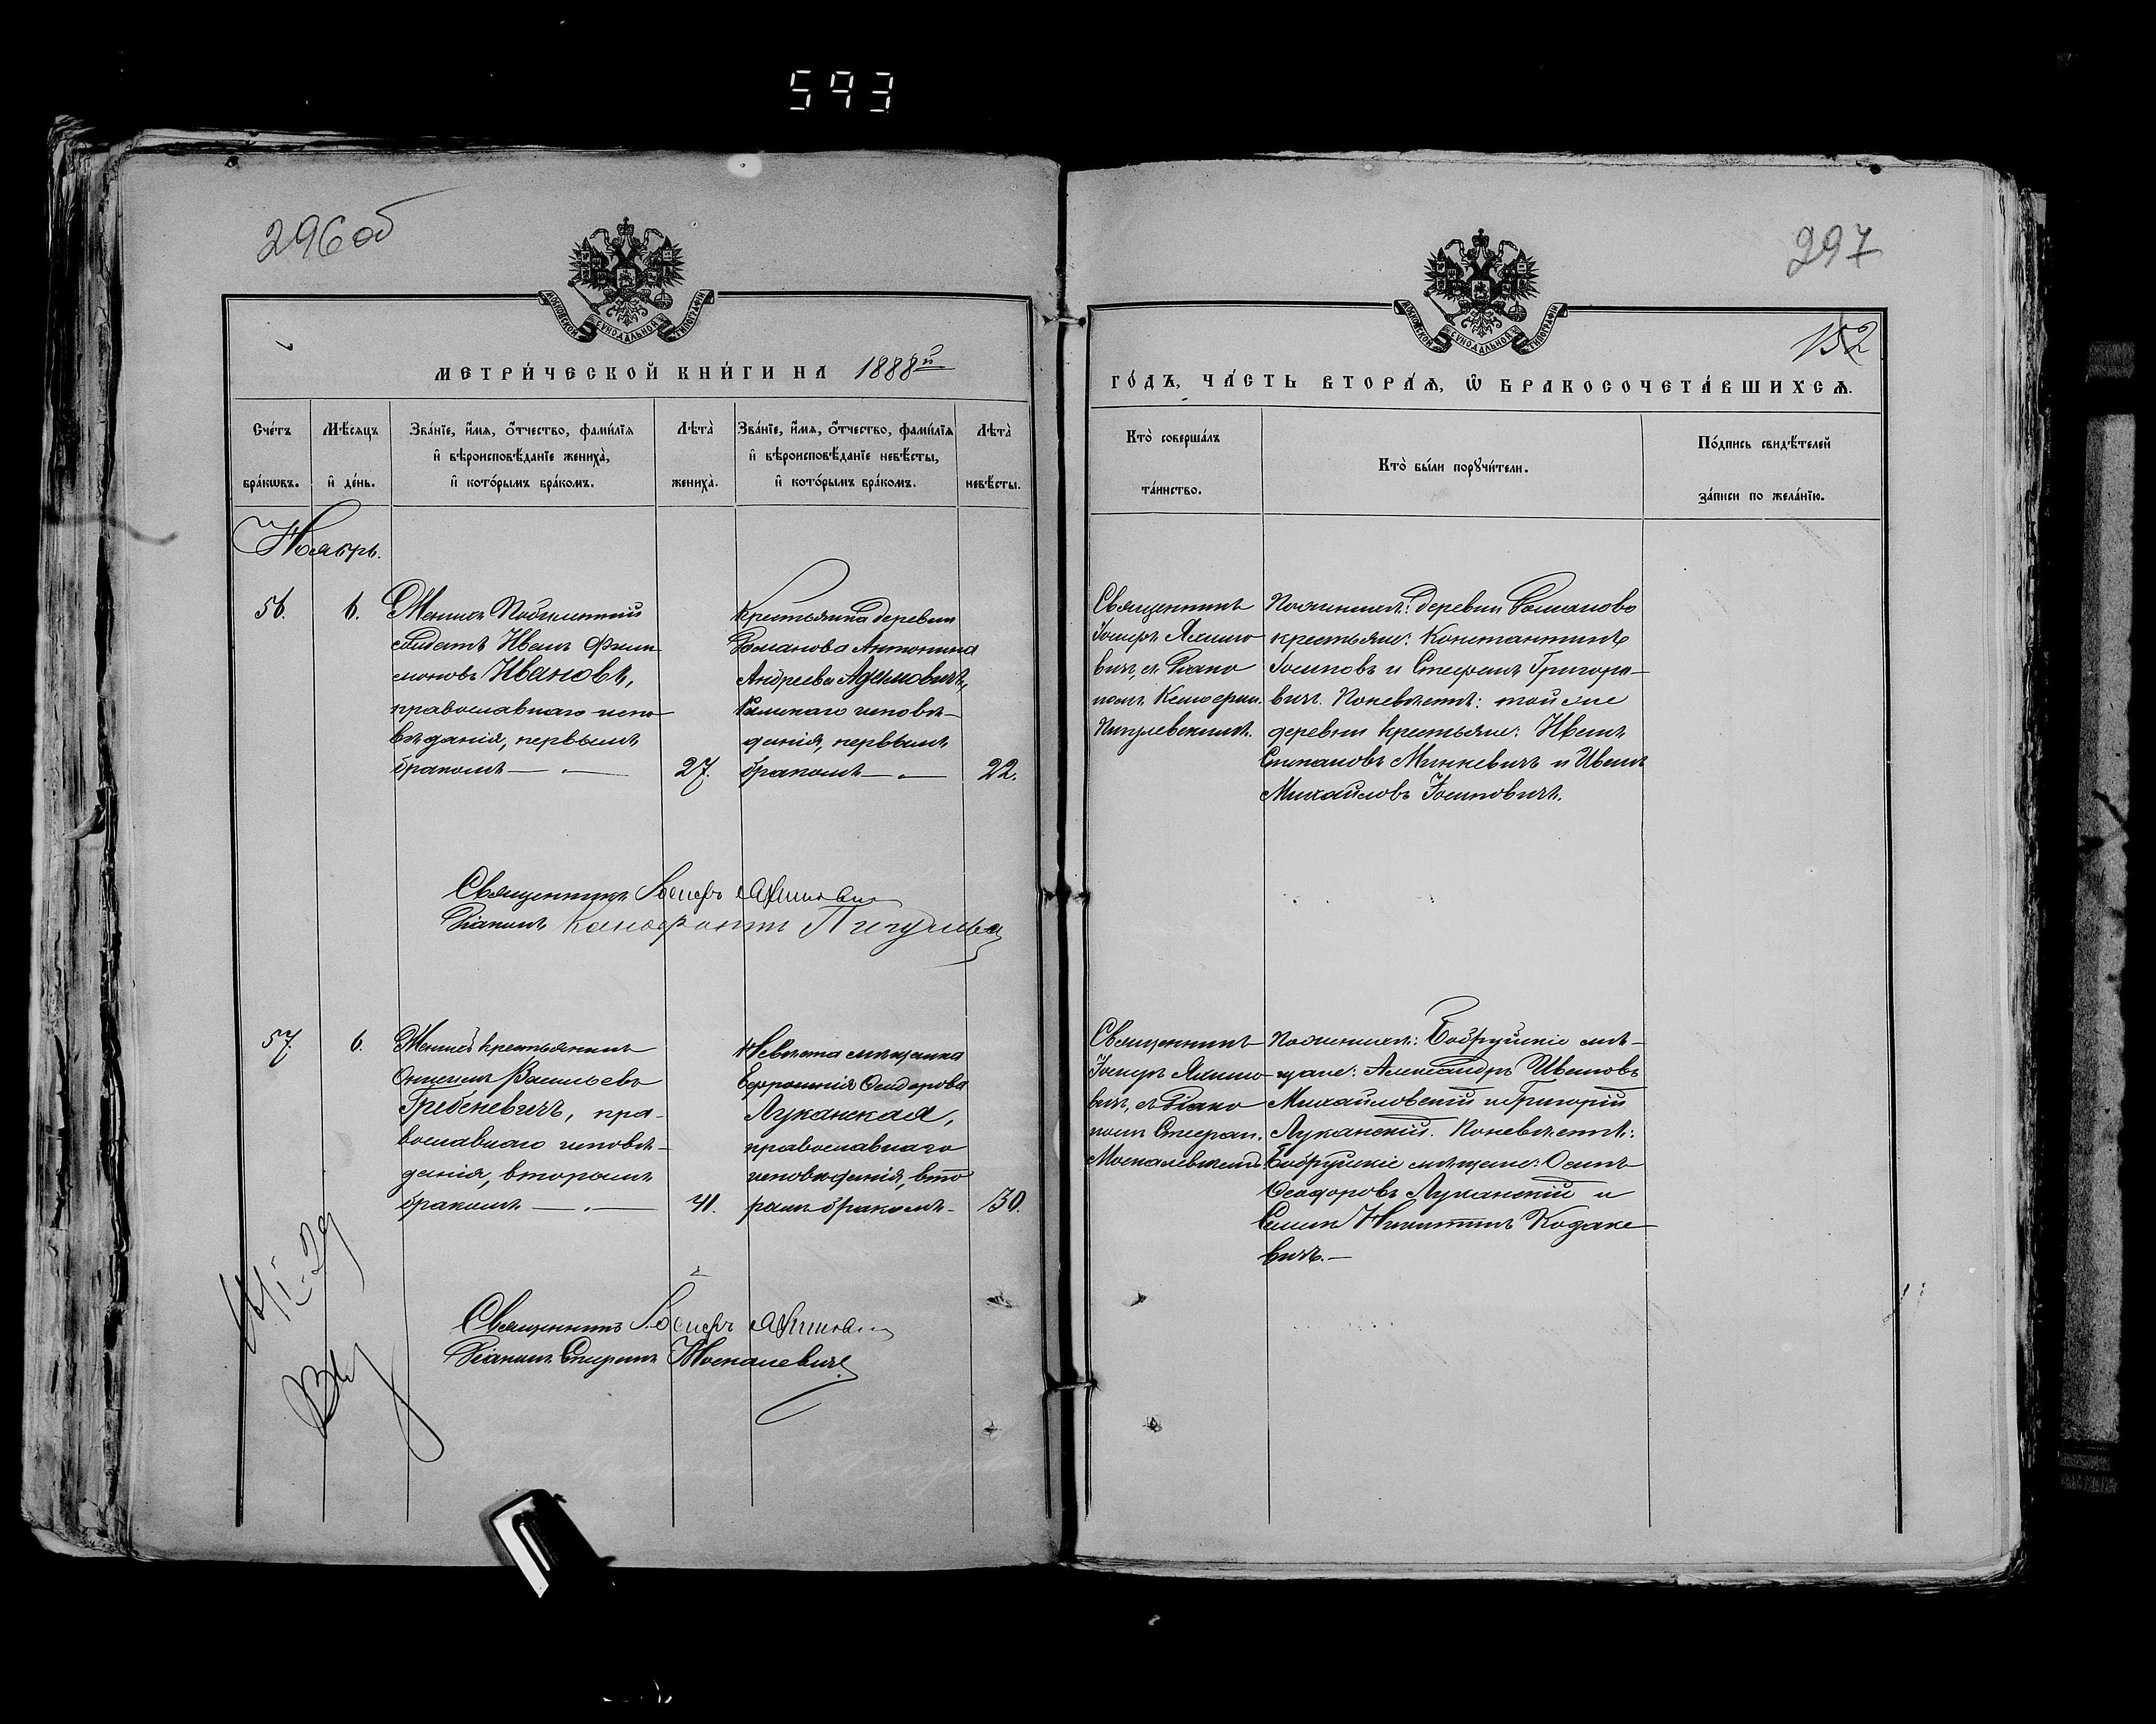 593
296об
МОСКОВСКОЙ СѴНОДАЛЬНОЙ ТИПОГРАФІИ
МЕТРИ́ЧЕСКОЙ КНИ́ГИ НА 1888й
Сче́тъ бра́кѡвъ.
Мѣ́сяцъ и҆ де́нь.
Зва́нїе, и҆́мя, ѻ҆́тчество, фами́лїя
и҆ вѣроисповѣ́данїе жениха̀,
и҆ кото́рымъ бра́комъ.
Лѣта̀ жениха̀.
Зва́нїе, и҆́мя, ѻ҆́тчество, фами́лїя
и҆ вѣроисповѣ́данїе невѣ́сты,
и҆ кото́рымъ бра́комъ.
Лѣта̀ невѣ́сты.
Ноябрь.
56.
6.
Женихъ
солдатъ Иванъ
Ивановъ,
православнаго испо
вѣданія, первымъ
бракомъ
27.
Крестьянка деревни
Романова Антонина
Андреева Адамовичъ,
Римскаго исповѣ-
данія, первымъ
бракомъ
22.
Священникъ Іосифъ
Діаконъ
57.
6.
Женихъ крестьянинъ
Васильевъ
Гребеневичъ, пра-
вославнаго исповѣ-
данія, вторымъ
бракомъ
41.
Невѣста мѣщанка
Евфросинія
Луканская,
православнаго
исповѣданія, вто
рымъ бракомъ
30.
Священникъ Іосифъ
Діаконъ Стефанъ Москалевичъ
297
152
МОСКОВСКОЙ СѴНОДАЛЬНОЙ ТИПОГРАФІИ
ГО́ДЪ, ЧА́СТЬ ВТОРА́Я, Ѡ҆ БРАКОСОЧЕТА́ВШИХСЯ.
Кто̀ соверша́лъ
та́инство.
Кто̀ бы́ли порꙋчи́тели.
По́дпись свидѣ́телей
за́писи по жела́нїю.
Священникъ
Іосифъ Яхимо
вичъ, съ Діако
номъ
По женихѣ: деревни Романово
крестьяне: Константинъ
Іосиповъ и Стефанъ Григоро-
вич. По невѣстѣ: той же
деревни крестьяне: Иванъ
Степановъ Минкевичъ и Иванъ
Михайловъ Іосиповичъ.
Священникъ
Іосифъ Яхимо
вичъ, съ Діако
номъ Стефан.
По женихѣ: Бобруйскіе мѣ-
щане: Александръ Ивановъ
Михайловскій и Григорій
Луканскій. По невѣстѣ:
Бобруйскіе мѣщане: Осипъ
Ѳеодоровъ Луканскій и
Никитинъ Козаке
вичъ.